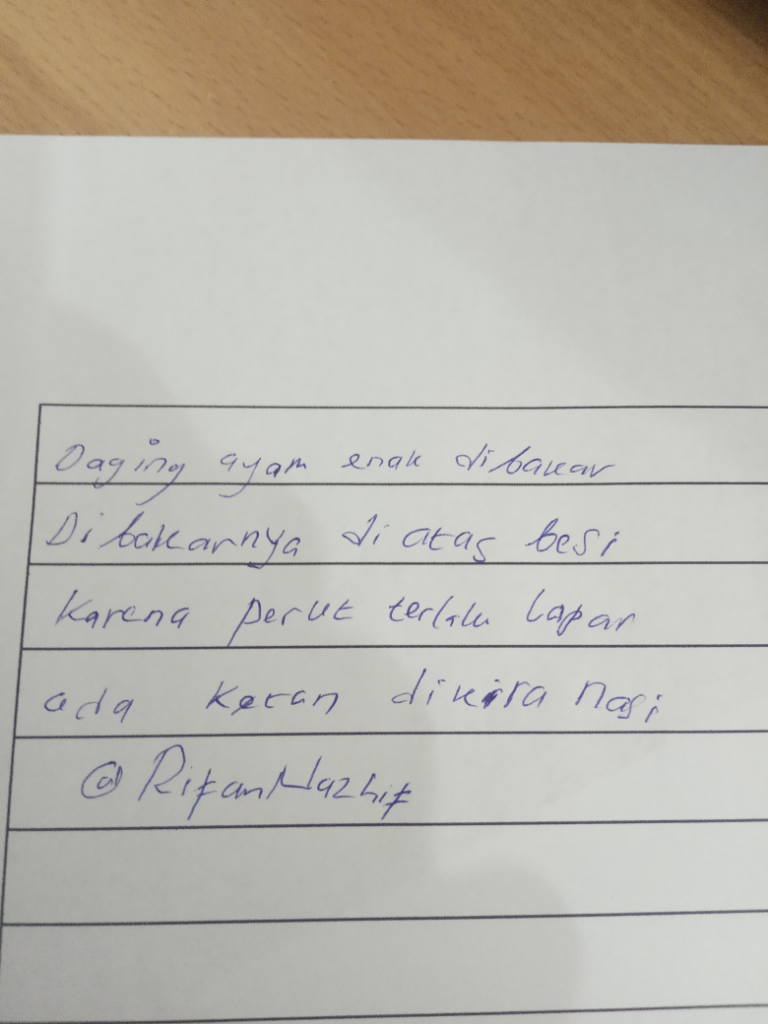 Daging ayam enak dibakar
Dibakarnya di atas besi
Karena perut terlalu lapar
ada ketan dikira nasi
@RifanNazhif